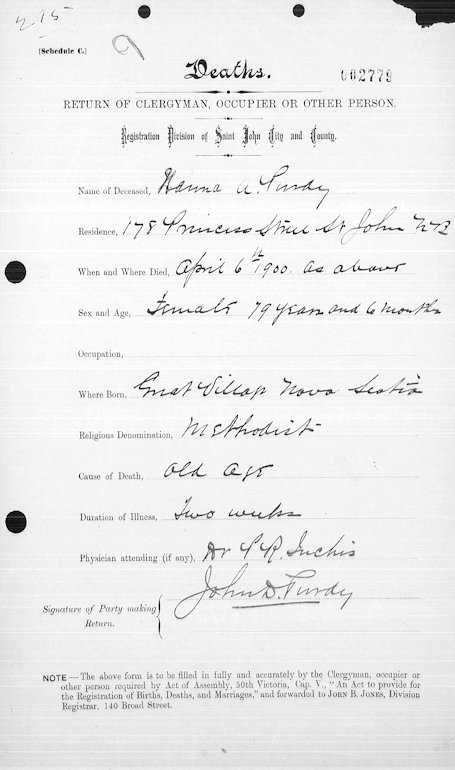 215
9
[Schedule C.]
Deaths.
002779
RETURN OF CLERGYMAN, OCCUPIER OR OTHER PERSON.
Registration Division of Saint John City and County.
Name of Deceased, Hanna A. Purdy
Residence, 178 Princess Street St John NB
When and Where Died, April 6th 1900. as above
Sex and Age, Female 79 years and 6 months
Occupation,
Where Born, Great Village Nova Scotia
Religious Denomination, Methodist
Cause of Death, Old Age
Duration of Illness, Two weeks
Physician attending (if any), Dr P R Inches
John D. Purdy
Signature of Party making
Return.
NOTE—The above form is to be filled in fully and accurately by the Clergyman, occupier or
other person required by Act of Assembly, 50th Victoria, Cap. V., "An Act to provide for
the Registration of Births, Deaths, and Marriages," and forwarded to JOHN B. JONES, Division
Registrar, 140 Broad Street.